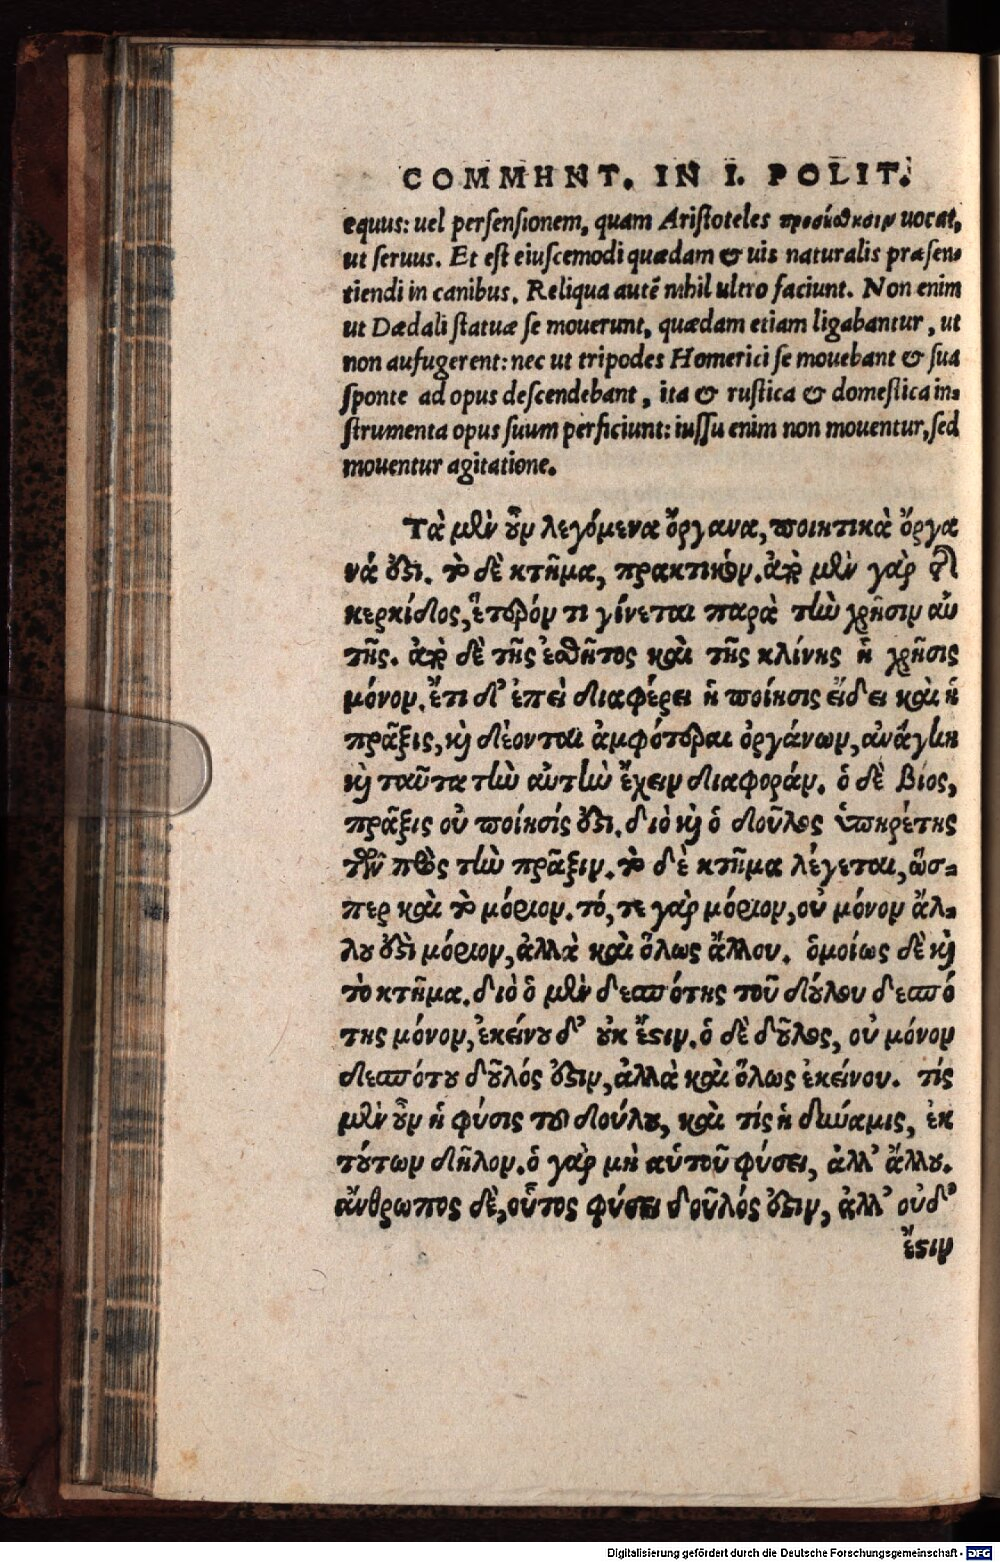 COMMHNT. IN I. POLIT.
equus: uel persensionem, quam Aristoteles uocat,
ut seruus. Et est eiuscemodi quædam & uis naturalis præsen-
tiendi in canibus. Reliqua autē nihil ultro faciunt. Non enim
ut Dædali statuæ se mouerunt, quædam etiam ligabantur, ut
non aufugerent: nec ut tripodes Homerici se mouebant & sua
sponte ad opus descendebant, ita & rustica & domestica in-
strumenta opus suum perficiunt: iussu enim non mouentur, sed
mouentur agitatione.
Τὰ μὲν οὖν λεγόμενα ὄργανα, ποιητικὰ ὄργα
νά ἐστι. τὸ δὲ κτῆμα, πρακτικόν. ἀπὸ μὲν γὰρ τῆς
κερκίδος, ἕτερόν τι γίνεται παρὰ τὴν χρῆσιν αὐ
τῆς. ἀπὸ δὲ τῆς ἐσθῆτος καὶ τῆς κλίνης ἡ χρῆσις
μόνον. ἔτι δ' ἐπεὶ διαφέρει ἡ ποίησις εἴδει καὶ ἡ
πρᾶξις, καὶ δέονται ἀμφότεραι ὀργάνων, ἀνάγκη
καὶ ταῦτα τὴν αὐτὴν ἔχειν διαφοράν. ὁ δὲ βίος,
πρᾶξις οὐ ποίησίς ἐστι. διὸ καὶ ὁ δοῦλος ὑπηρέτης
τῶν πρὸς τὴν πρᾶξιν. τὸ δὲ κτῆμα λέγεται, ὥσ-
περ καὶ τὸ μόριον. τό, τε γὰρ μόριον, οὐ μόνον ἄλ-
λου ἐστὶ μόριον, ἀλλὰ καὶ ὅλως ἄλλου. ὁμοίως δὲ καὶ
τὸ κτῆμα. διὸ ὁ μὲν δεσπότης τοῦ δούλου δεσπό
της μόνον, ἐκείνου δ' οὐκ ἔστιν. ὁ δὲ δοῦλος, οὐ μόνον
δεσπότου δοῦλός ἐστιν, ἀλλὰ καὶ ὅλως ἐκείνου. τίς
μὲν οὖν ἡ φύσις τοῦ δούλου, καὶ τίς ἡ δύναμις, ἐκ
τούτων δῆλον. ὁ γὰρ μὴ αὑτοῦ φύσει, ἀλλ' ἄλλου.
ἄνθρωπος δὲ, οὗτος φύσει δοῦλός ἐστιν, ἀλλ' οὐδ'
ἔστιν
Digitalisierung gefördert durch die Deutsche Forschungsgemeinschaft - DFG